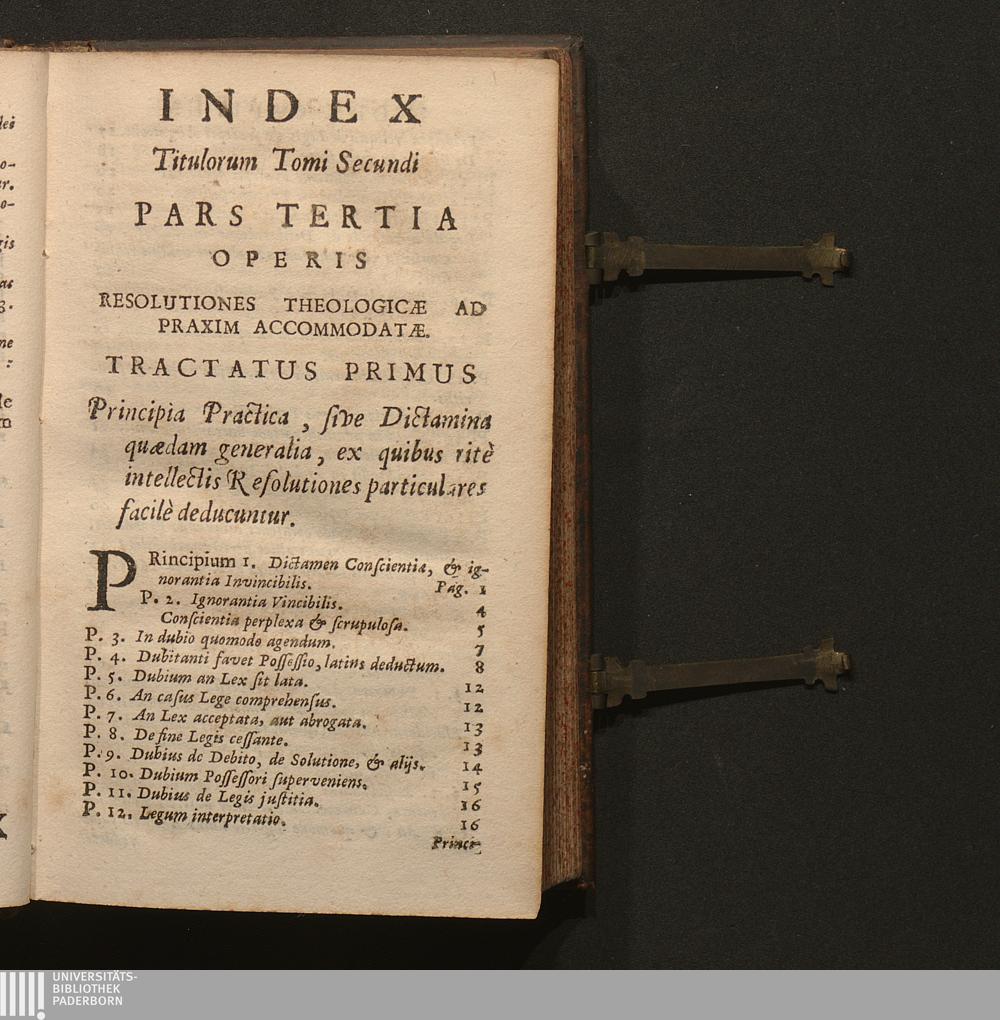 INDEX
Titulorum Tomi Secundi
PARS TERTIA
OPERIS
RESOLUTIONES THEOLOGICÆ AD
PRAXIM ACCOMMODATÆ.
TRACTATUS PRIMUS
Principia Practica, ſive Dictamina
quædam generalia, ex quibus ritè
intellectis Reſolutiones particulares
facilè deducuntur.
PRincipium 1. Dictamen Conſcientia, & ig-
norantia Invincibilis. Pag. 1
P. 2. Ignorantia Vincibilis. 4
Conſcientia perplexa & ſcrupuloſa. 5
P. 3. In dubio quomodo agendum. 7
P. 4. Dubitanti favet Poſſeſſio, latius deductum. 8
P. 5. Dubium an Lex ſit lata. 12
P. 6. An caſus Lege comprehenſus. 12
P. 7. An Lex acceptata, aut abrogata. 13
P. 8. De fine Legis ceſſante. 13
P. 9. Dubius de Debito, de Solutione, & alijs. 14
P. 10. Dubium Poſſeſſori ſuperveniens. 15
P. 11. Dubius de Legis juſtitia. 16
P. 12. Legum interpretatio. 16
Princi-
UNIVERSITÄTS-
BIBLIOTHEK
PADERBORN